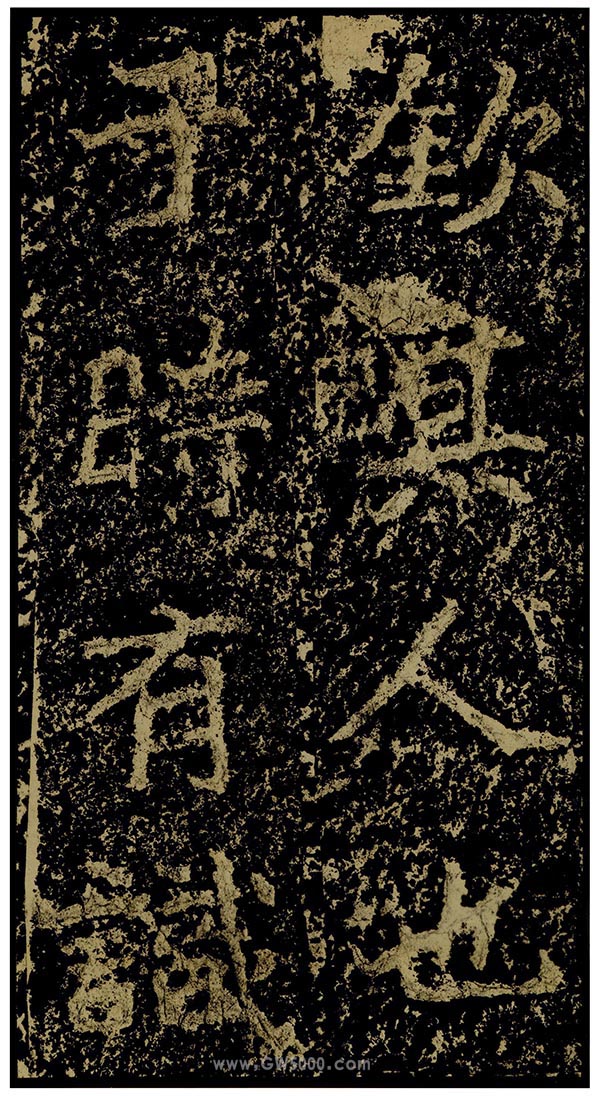 欽眞人也
于時有識
www.GWS000.com